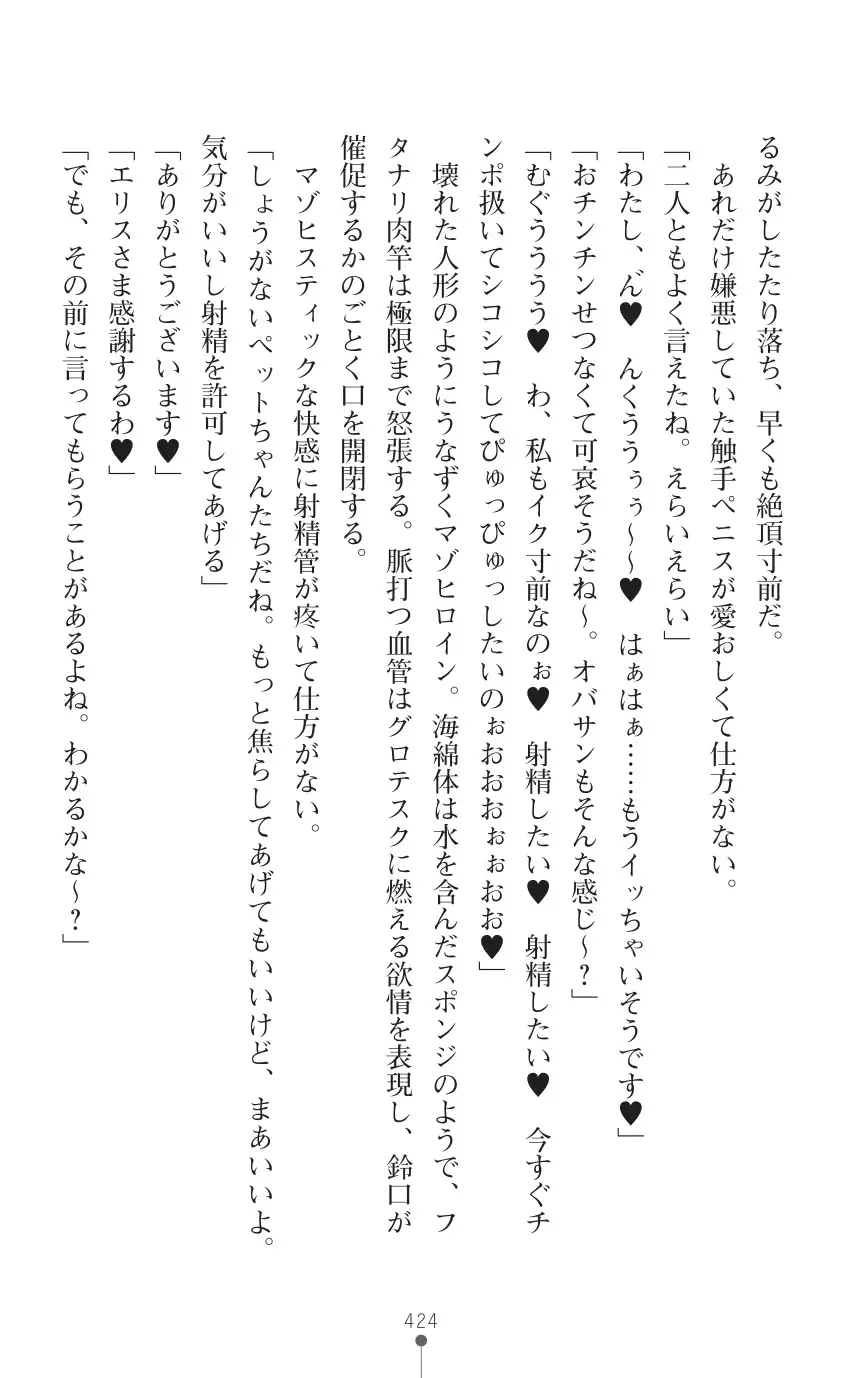 るみがしたたり落ち、早くも絶頂寸前だ。
あれだけ嫌悪していた触手ペニスが愛おしくて仕方がない。
「二人ともよく言えたね。えらいえらい」
「わたし、ん゛♥　んくううぅぅ～～♥　はぁはぁ……もうイッちゃいそうです♥」
「おチンチンせつなくて可哀そうだね～。オバサンもそんな感じ～？」
「むぐうううう♥　わ、私もイク寸前なのぉ♥　射精したい♥　射精したい♥　今すぐチ
ンポ扱いてシコシコしてぴゅっぴゅっしたいのぉおおおぉぉおお♥」
壊れた人形のようにうなずくマゾヒロイン。海綿体は水を含んだスポンジのようで、フ
タナリ肉竿は極限まで怒張する。脈打つ血管はグロテスクに燃える欲情を表現し、鈴口が
催促するかのごとく口を開閉する。
マゾヒスティックな快感に射精管が疼いて仕方がない。
「しょうがないペットちゃんたちだね。もっと焦らしてあげてもいいけど、まあいいよ。
気分がいいし射精を許可してあげる」
「ありがとうございます♥」
「エリスさま感謝するわ♥」
「でも、その前に言ってもらうことがあるよね。わかるかな～？」
424